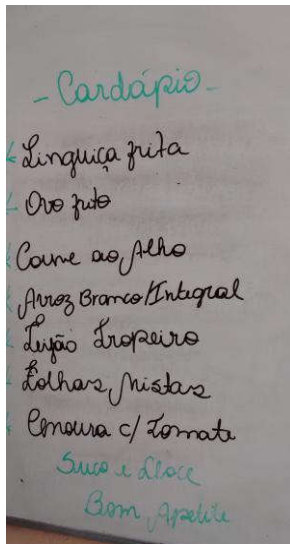 - Cardápio -
Linguiça frita
Ovo frito
Carne ao Alho
Arroz Branco/Integral
Feijão Tropeiro
Folhas Mistas
Cenoura c/ Tomate
Suco e Doce
Bom Apetite